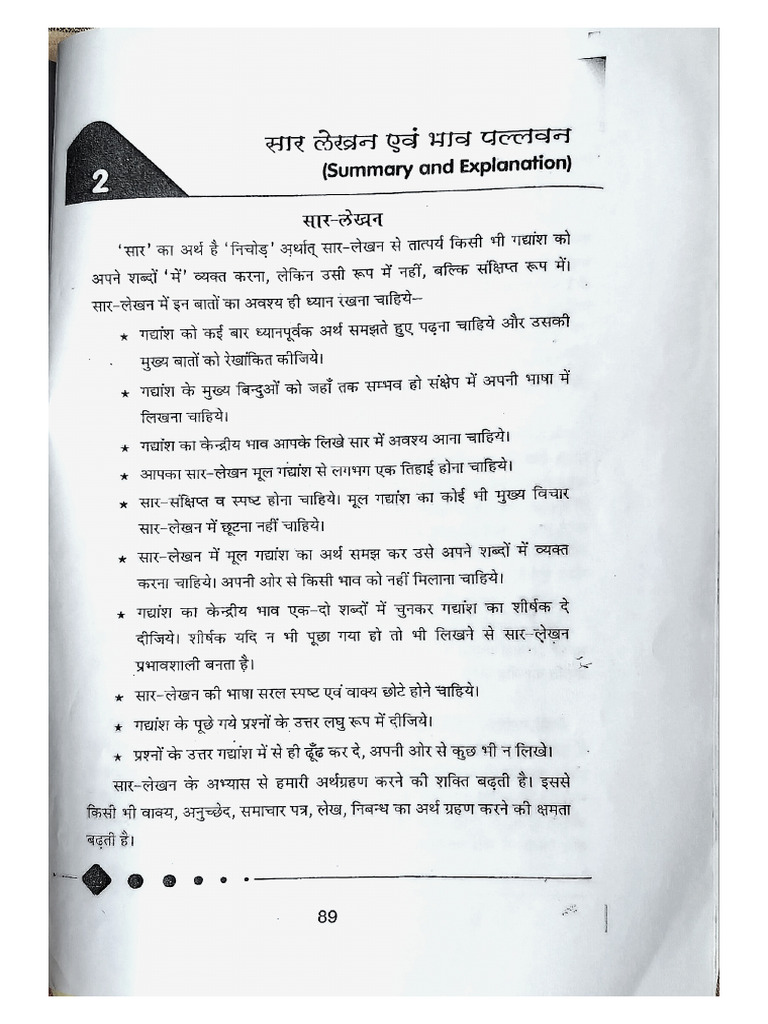 2
सार लेखन एवं भाव पल्लवन
(Summary and Explanation)
सार-लेखन
'सार' का अर्थ है 'निचोड़' अर्थात् सार-लेखन से तात्पर्य किसी भी गद्यांश को
अपने शब्दों 'में' व्यक्त करना, लेकिन उसी रूप में नहीं, बल्कि संक्षिप्त रूप में।
सार-लेखन में इन बातों का अवश्य ही ध्यान रखना चाहिये–
★ गद्यांश को कई बार ध्यानपूर्वक अर्थ समझते हुए पढ़ना चाहिये और उसकी
मुख्य बातों को रेखांकित कीजिये।
★ गद्यांश के मुख्य बिन्दुओं को जहाँ तक सम्भव हो संक्षेप में अपनी भाषा में
लिखना चाहिये।
★ गद्यांश का केन्द्रीय भाव आपके लिखे सार में अवश्य आना चाहिये।
★ आपका सार-लेखन मूल गद्यांश से लगभग एक तिहाई होना चाहिये।
★ सार-संक्षिप्त व स्पष्ट होना चाहिये। मूल गद्यांश का कोई भी मुख्य विचार
सार-लेखन में छूटना नहीं चाहिये।
★ सार-लेखन में मूल गद्यांश का अर्थ समझ कर उसे अपने शब्दों में व्यक्त
करना चाहिये। अपनी ओर से किसी भाव को नहीं मिलाना चाहिये।
★ गद्यांश का केन्द्रीय भाव एक-दो शब्दों में चुनकर गद्यांश का शीर्षक दे
दीजिये। शीर्षक यदि न भी पूछा गया हो तो भी लिखने से सार-लेखन
प्रभावशाली बनता है।
★ सार-लेखन की भाषा सरल स्पष्ट एवं वाक्य छोटे होने चाहिये।
★ गद्यांश के पूछे गये प्रश्नों के उत्तर लघु रूप में दीजिये।
★ प्रश्नों के उत्तर गद्यांश में से ही ढूँढ कर दे, अपनी ओर से कुछ भी न लिखे।
सार-लेखन के अभ्यास से हमारी अर्थग्रहण करने की शक्ति बढ़ती है। इससे
किसी भी वाक्य, अनुच्छेद, समाचार पत्र, लेख, निबन्ध का अर्थ ग्रहण करने की क्षमता
बढ़ती है।
89